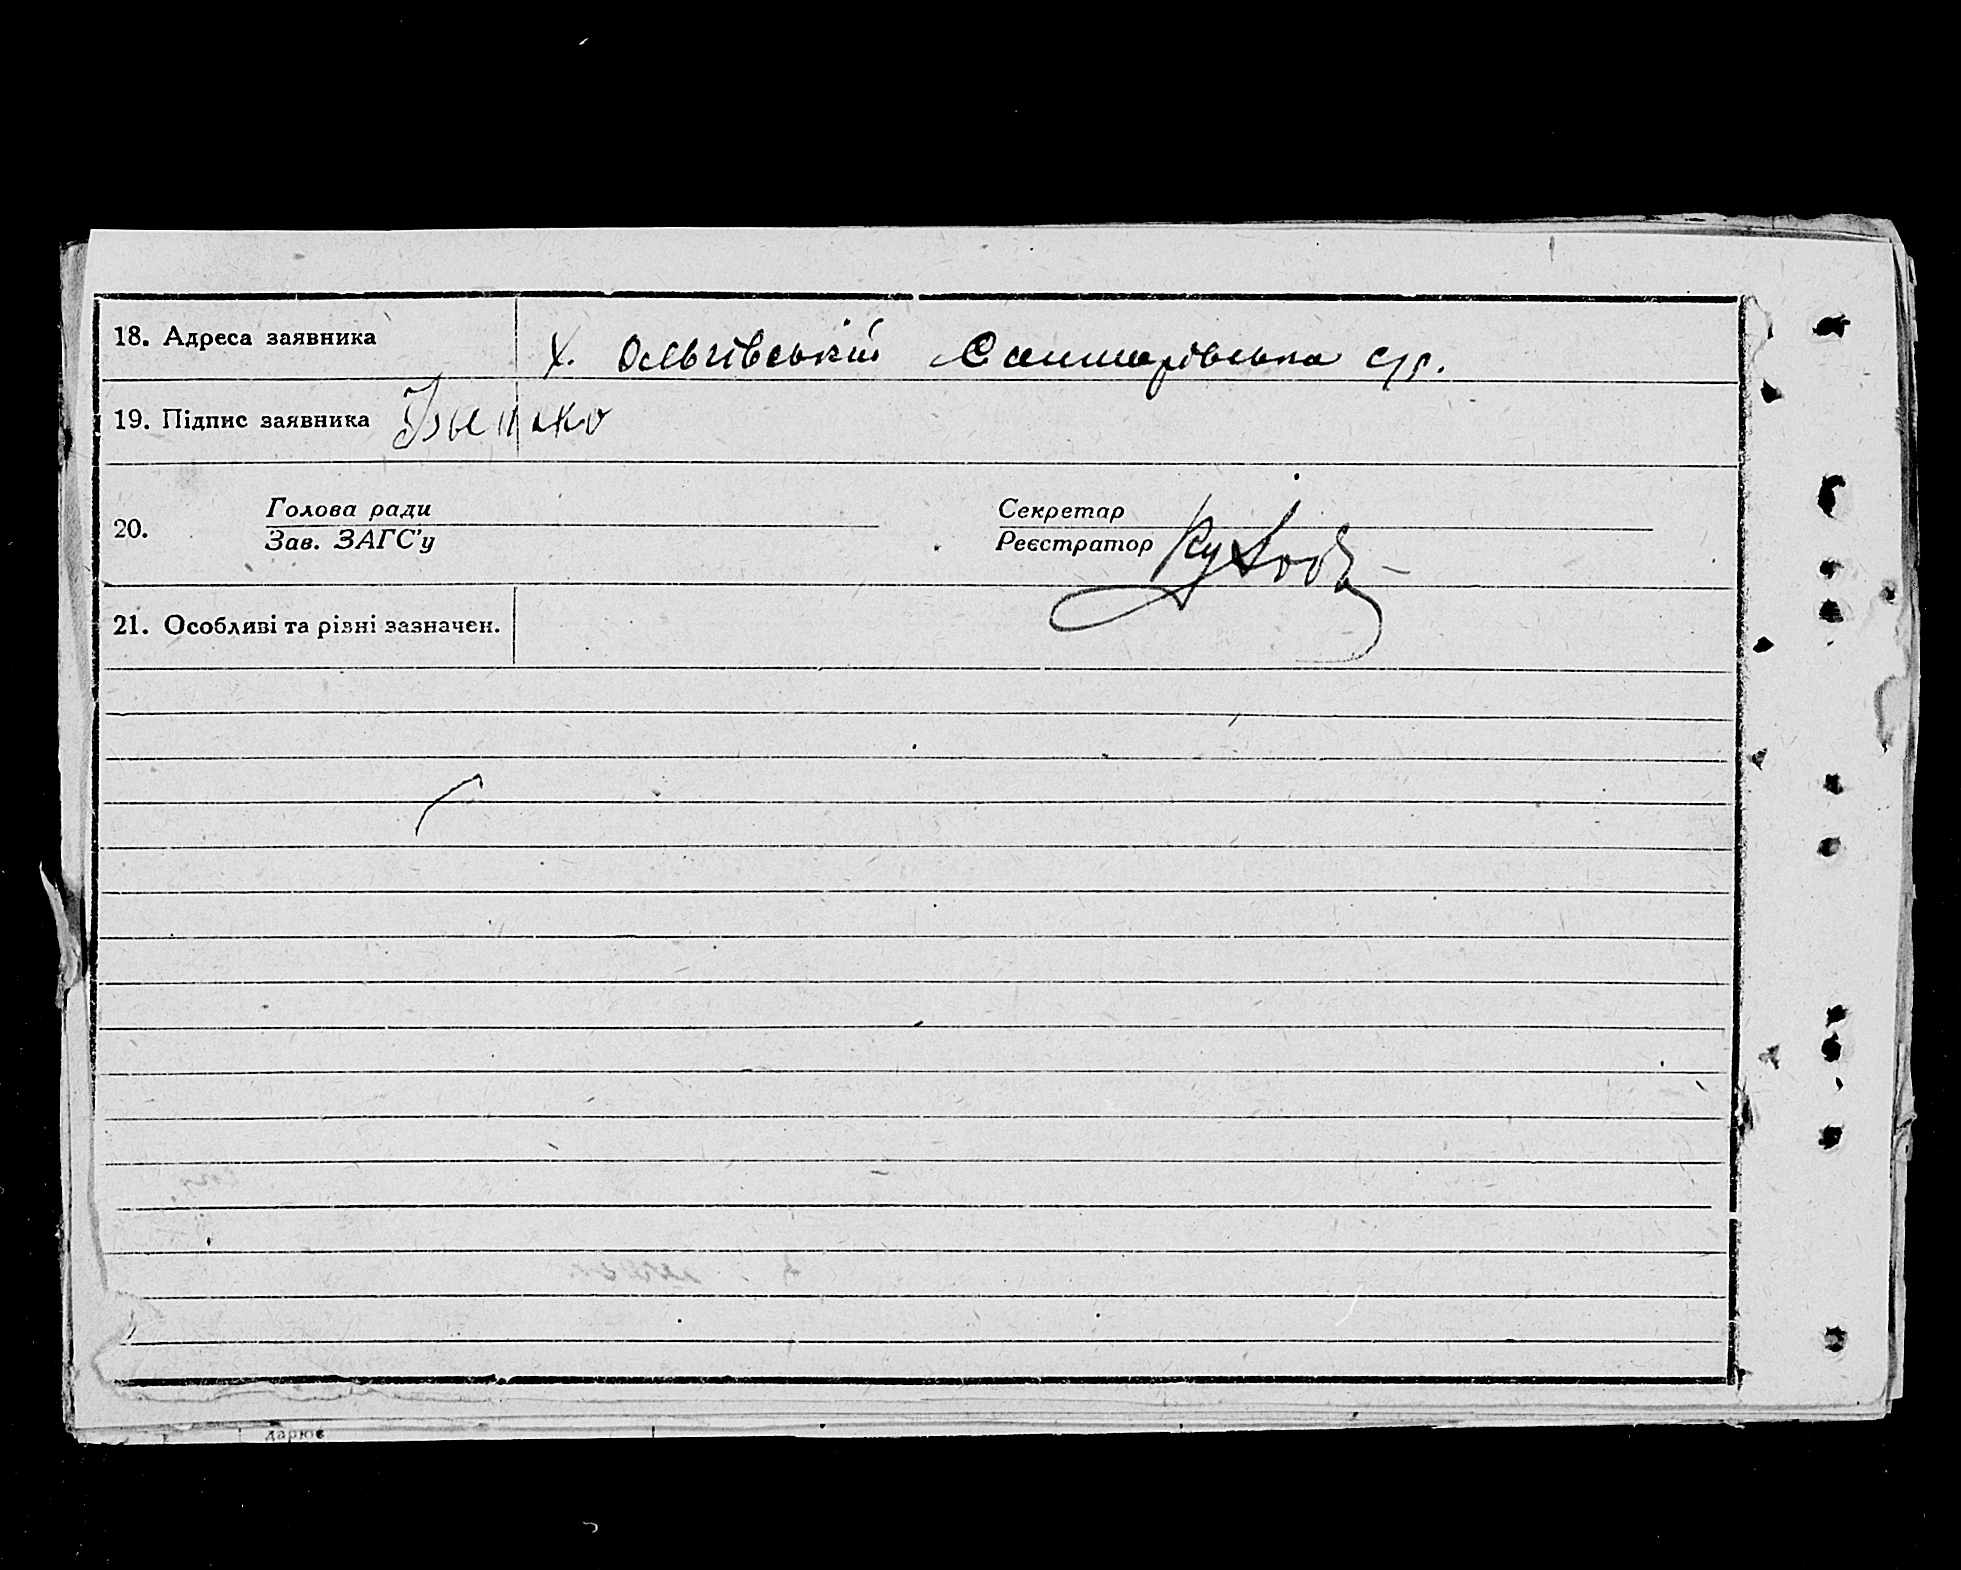 18. Адреса заявника х. Ольгівський Санжарівська с/р.
19. Підпис заявника
20. Голова ради Секретар
Зав. ЗАГС'у Реєстратор
21. Особливі та різні зазначен.
дарює